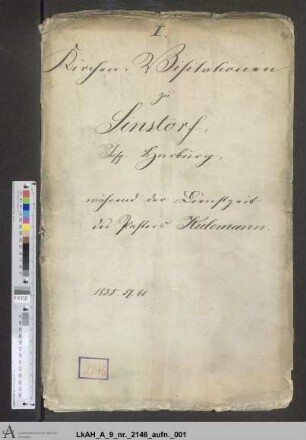 I.
Kirchen-Visitationen
zu
Sinstorf,
Insp. Harburg,
während der Dienstzeit
des Pastors Kulemann.
1855. 57. 61
2146
LkAH_A_9_nr._2146_aufn._001